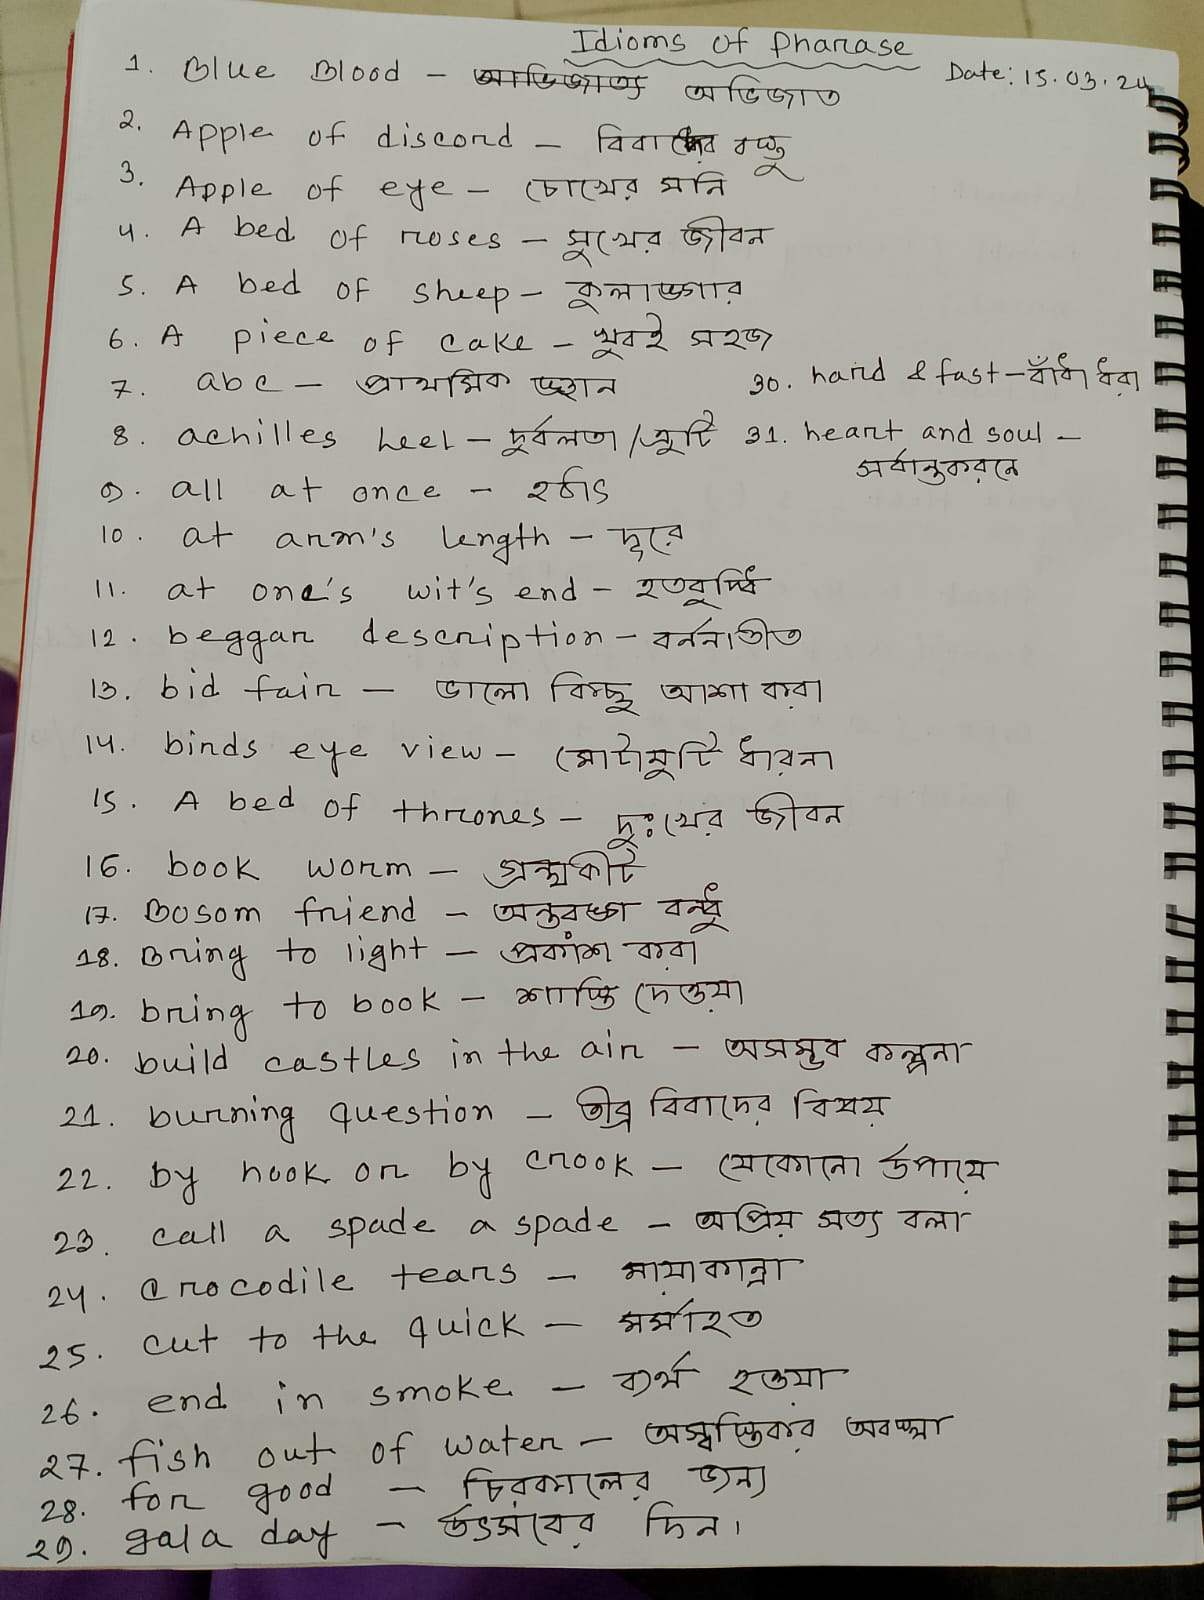 Idioms of Pharase
Date: 15.03.24
1. Blue Blood – আভিজাত্য অভিজাত
2. Apple of discord – বিবাদের বস্তু
3. Apple of eye – চোখের মনি
4. A bed of roses – সুখের জীবন
5. A bed of sheep – কুলাঙ্গার
6. A piece of cake – খুবই সহজ
7. abc – প্রাথমিক জ্ঞান
8. achilles heel – দুর্বলতা / ত্রুটি
9. all at once – হঠাৎ
10. at arm's length – দূরে
11. at one's wit's end – হতবুদ্ধি
12. beggar description – বর্ননাতীত
13. bid fair – ভালো কিছু আশা করা
14. birds eye view – মোটামুটি ধারনা
15. A bed of thrones – দুঃখের জীবন
16. book worm – গ্রন্থকীট
17. Bosom friend – অন্তরঙ্গ বন্ধু
18. Bring to light – প্রকাশ করা
19. bring to book – শাস্তি দেওয়া
20. build castles in the air – অসম্ভব কল্পনা
21. burning question – তীব্র বিবাদের বিষয়
22. by hook or by crook – যেকোনো উপায়ে
23. call a spade a spade – অপ্রিয় সত্য বলা
24. crocodile tears – মায়াকান্না
25. cut to the quick – মর্মাহত
26. end in smoke – ব্যর্থ হওয়া
27. fish out of water – অস্বস্তিকর অবস্থা
28. for good – চিরকালের জন্য
29. gala day – উৎসবের দিন।
30. hard & fast – বাঁধা ধরা
31. heart and soul –
সর্বান্তকরনে